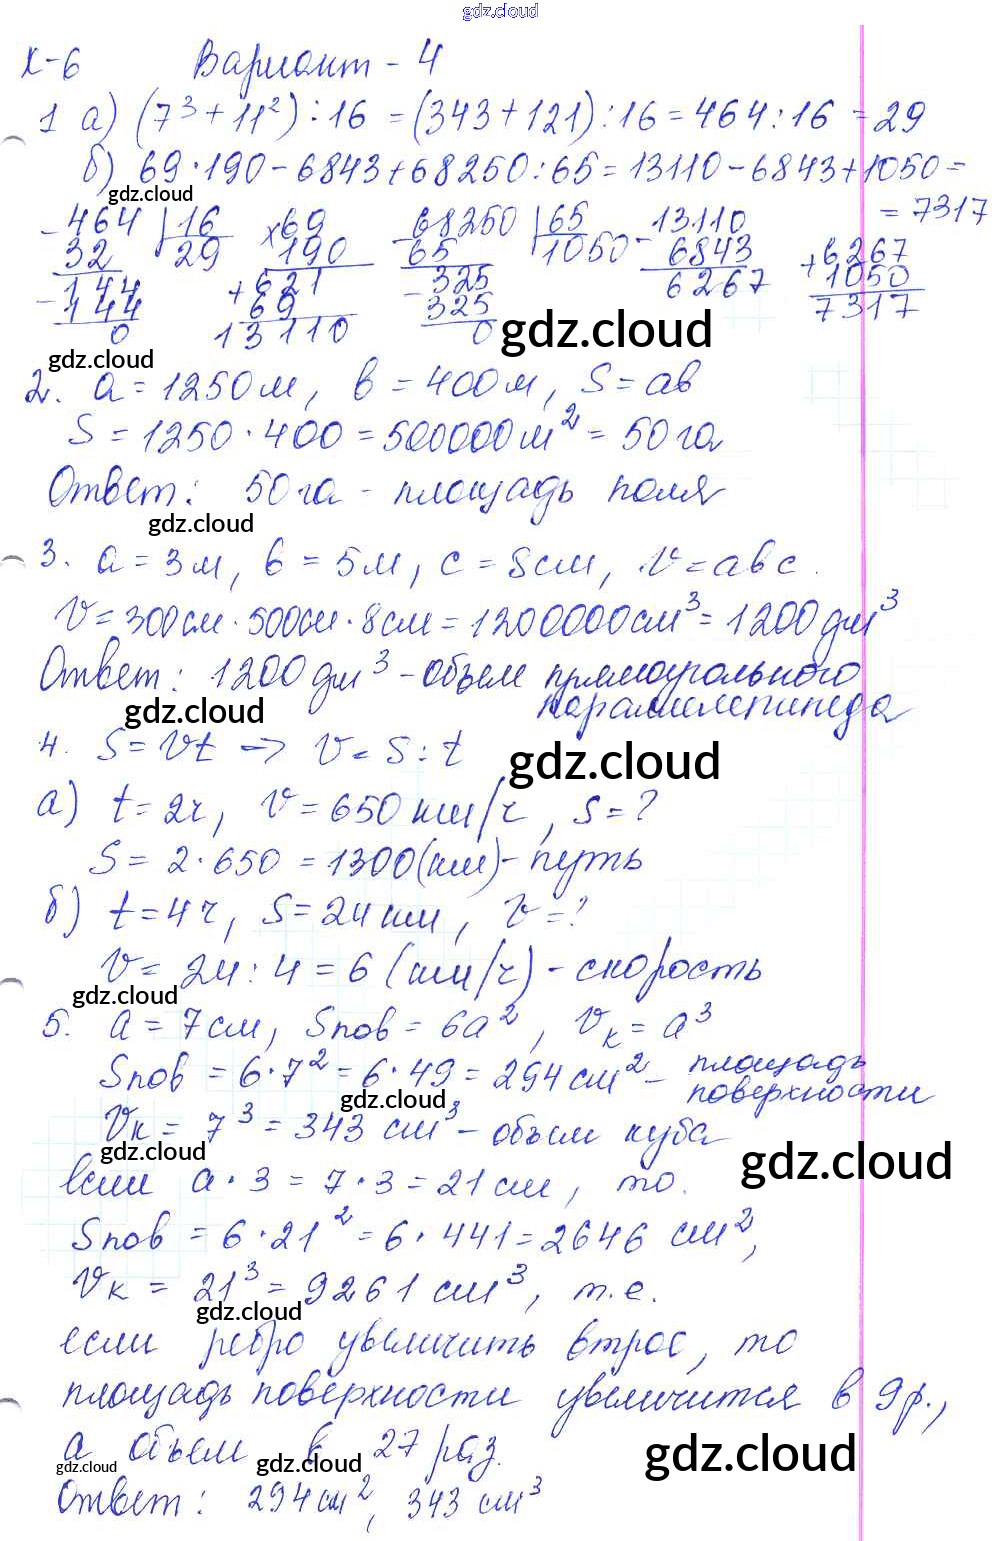 gdz.cloud
К-6 Вариант - 4
1 а) (7³ + 11²) : 16 = (343 + 121) : 16 = 464 : 16 = 29
б) 69 · 190 - 6843 + 68250 : 65 = 13110 - 6843 + 1050 =
= 7317
gdz.cloud
- 464 | 16
32 29
- 144
144
0
× 69
190
+ 621
69
13110
- 68250 | 65
65 1050
- 325
325
0
- 13110
6843
6267
+ 6267
1050
7317
gdz.cloud
gdz.cloud
2. a = 1250 м, b = 400 м, S = ab
S = 1250 · 400 = 500000 м² = 50 га
Ответ: 50 га - площадь поля
gdz.cloud
3. a = 3 м, b = 5 м, c = 8 см, V = abc.
V = 300 см · 500 см · 8 см = 1200000 см³ = 1200 дм³
Ответ: 1200 дм³ - объем прямоугольного
параллелепипеда
gdz.cloud
4. S = Vt -> V = S : t
gdz.cloud
а) t = 2 ч, V = 650 км/ч, S = ?
S = 2 · 650 = 1300 (км) - путь
б) t = 4 ч, S = 24 км, V = ?
V = 24 : 4 = 6 (км/ч) - скорость
gdz.cloud
5. a = 7 см, Sпов = 6a², Vк = a³
Sпов = 6 · 7² = 6 · 49 = 294 см² - площадь
поверхности
gdz.cloud
Vк = 7³ = 343 см³ - объем куба
gdz.cloud
gdz.cloud
если a · 3 = 7 · 3 = 21 см, то.
Sпов = 6 · 21² = 6 · 441 = 2646 см²,
Vк = 21³ = 9261 см³, т.е.
gdz.cloud
если ребро увеличить втрое, то
площадь поверхности увеличится в 9 р.,
а объем в 27 раз.
gdz.cloud
gdz.cloud
gdz.cloud
Ответ: 294 см², 343 см³